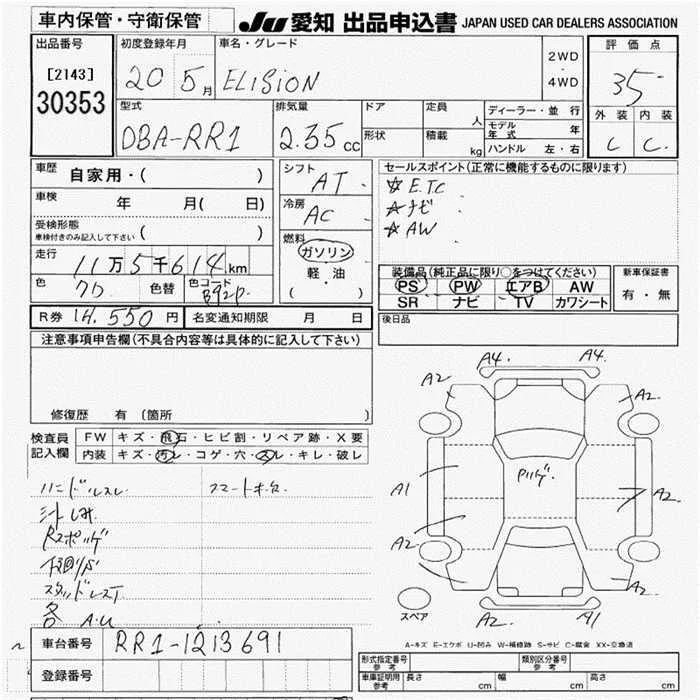 車内保管・守衛保管
JU 愛知 出品申込書 JAPAN USED CAR DEALERS ASSOCIATION
出品番号
[2143]
30353
初度登録年月
20 5月
車名・グレード
ELISION
2WD
・
4WD
評価点
35
外装 内装
C C
型式
DBA-RR1
排気量
2.35cc
ドア
形状
定員
人
積載
kg
ディーラー・並行
モデル年式 年
ハンドル 左・右
車歴 自家用・( )
車検 年 月( 日)
受検形態
車検付きのみ記入して下さい ( )
走行
11万5千614km
色 色替 色コード
B92P
R券 14,550円 名変通知期限 月 日
シフト
AT
冷房
AC
燃料
ガソリン
軽・油
( )
セールスポイント(正常に機能するものに限ります)
☆ E.TC
☆ ナビ
☆ AW
装備品(純正品に限り○をつけてください)
PS PW エアB AW
SR ナビ TV カワシート
新車保証書
有・無
後日品
注意事項申告欄(不具合内容等は具体的に記入して下さい)
修復歴 有 (箇所
検査員記入欄
FW キズ・飛石・ヒビ割・リペア跡・X要
内装 キズ・汚レ・コゲ・穴・スレ・キレ・破レ
ハンドルスレ
シートしみ
スマートキー
各 A.U
A2 A4 A4 A2
A1 A2
A2 A2
A2 A1
スペア
A-キズ E-エクボ U-凹み W-補修跡 S-サビ C-腐食 XX-交換済
車台番号 RR1-1213691
登録番号
形式指定番号 参考
類別区分番号 参考
車庫証明用 参考 長さ cm 幅 cm 高さ cm